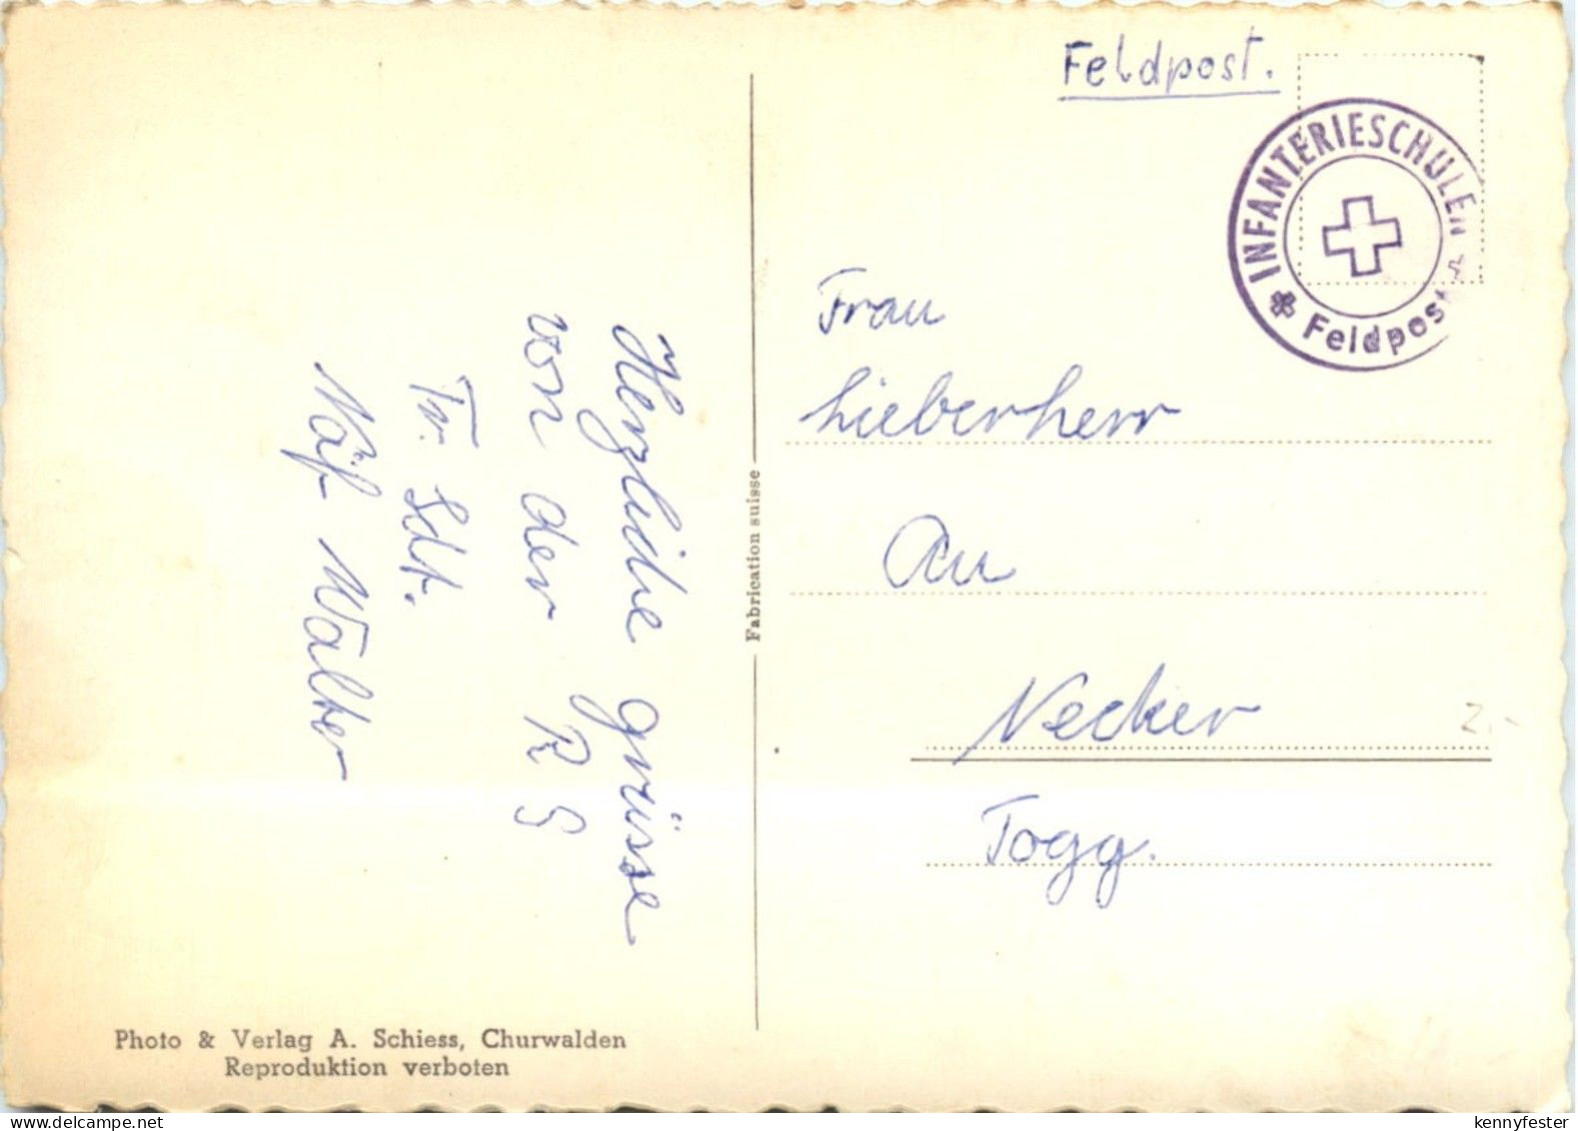 Feldpost.
INFANTERIESCHULEN
Feldpost
Frau
Lieberherr
Au
Necker
Togg.
Herzliche grüsse
von der R S
Tr. Sdt.
Näf Walter
Fabrication suisse
Photo & Verlag A. Schiess, Churwalden
Reproduktion verboten
2.-
kennyfester